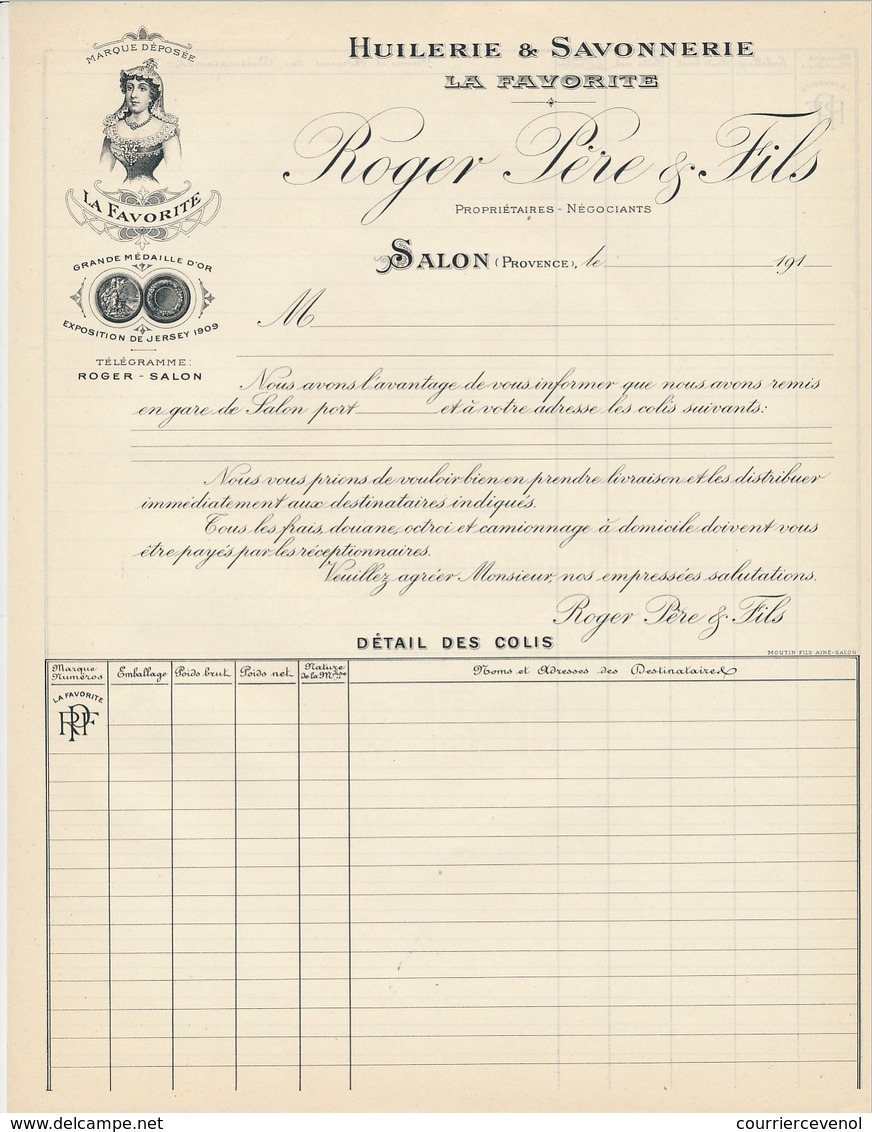 MARQUE DÉPOSÉE
LA FAVORITE
GRANDE MÉDAILLE D'OR
EXPOSITION DE JERSEY 1909
TÉLÉGRAMME:
ROGER - SALON
HUILERIE & SAVONNERIE
LA FAVORITE
Roger Père & Fils
PROPRIÉTAIRES - NÉGOCIANTS
SALON (PROVENCE), le 191
M
Nous avons l'avantage de vous informer que nous avons remis
en gare de Salon port et à votre adresse les colis suivants:
Nous vous prions de vouloir bien en prendre livraison et les distribuer
immédiatement aux destinataires indiqués.
Tous les frais, douane, octroi et camionnage à domicile doivent vous
être payés par les réceptionnaires.
Veuillez agréer Monsieur, nos empressées salutations.
Roger Père & Fils
DÉTAIL DES COLIS
MOUTIN FILS AINÉ-SALON
Marque Numéros Emballage Poids brut Poids net Nature de la Mdise Noms et Adresses des Destinataires
LA FAVORITE
RPF
delcampe.net
courriercevenol